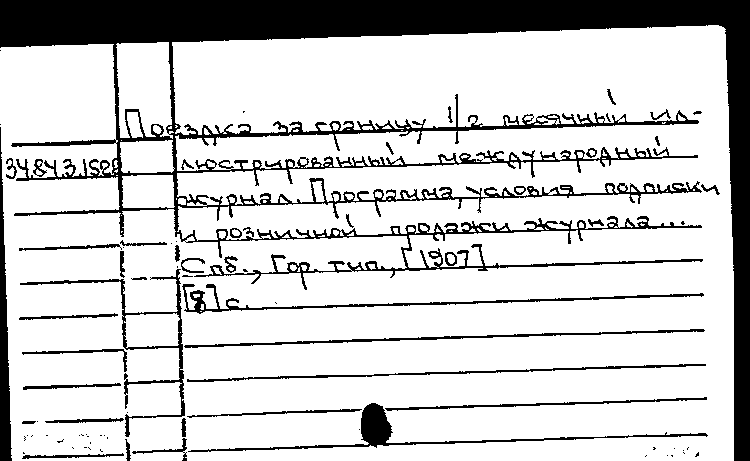 Поездка за границу | 2 месячный ил-
34.84.3.1522. люстрированный международный
журнал. Программа, условия подписки
и розничной продажи журнала...
Спб., Гор. тип., [1907].
[8] с.